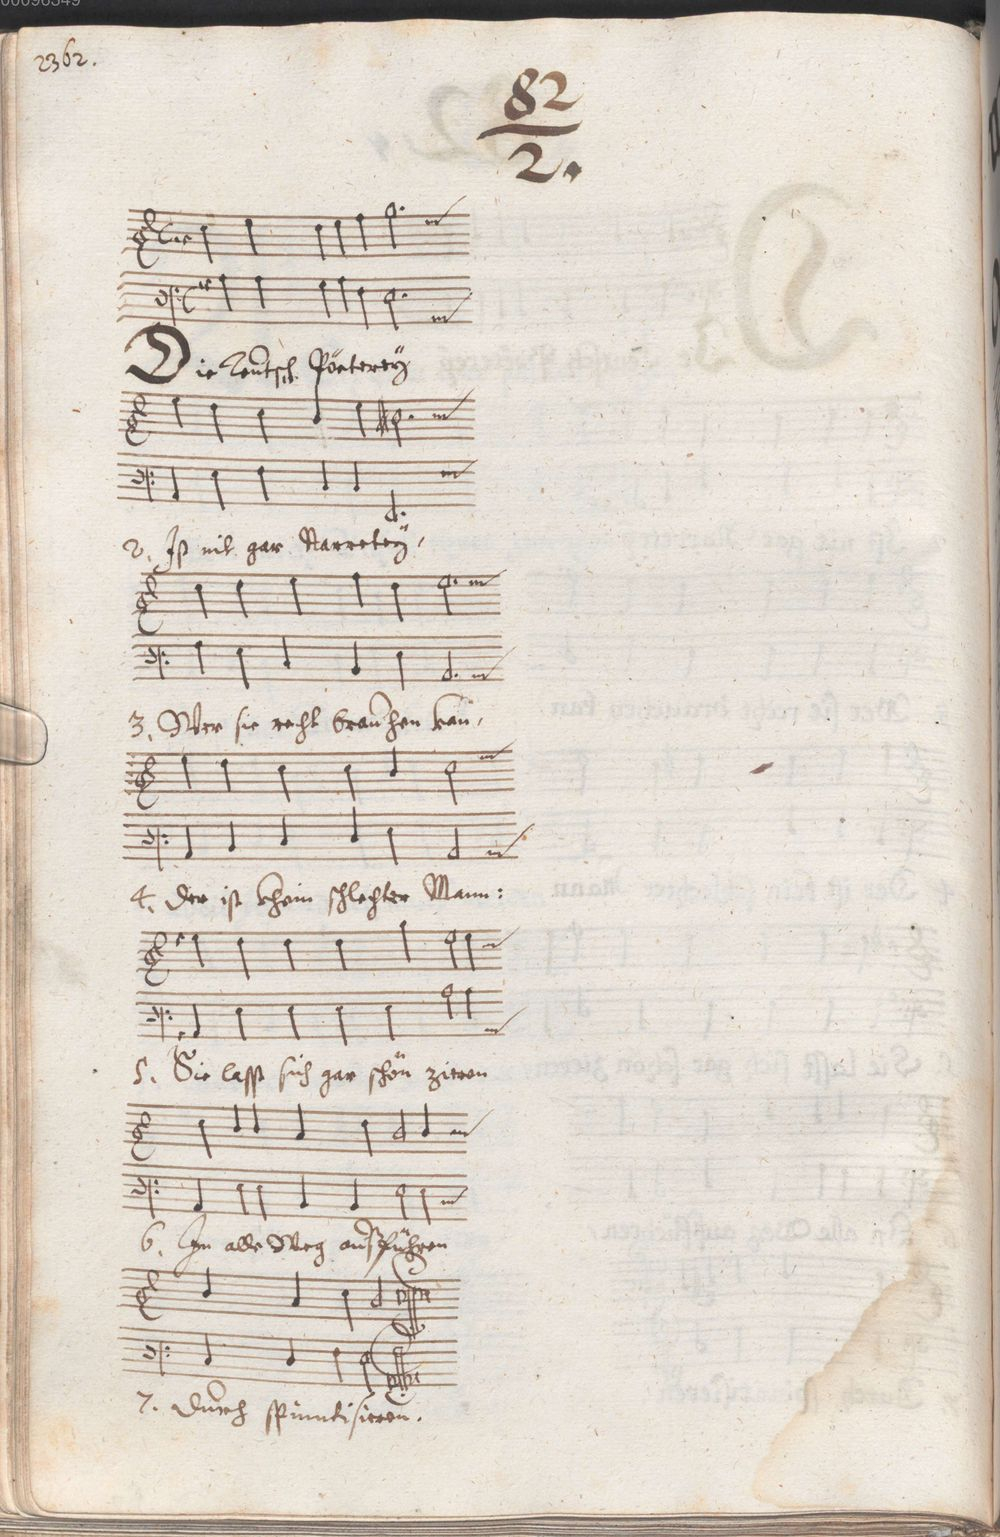 00096349
2362.
82
2.
Die Teutsch Pöeterey
2. Ist nit gar Narretey,
3. Wer sie recht brauchen kan,
4. Der ist khein schlechter Mann:
5. Sie lasst sich gar schön zieren
6. In alle Weg außführen
7. Durch spintisieren.